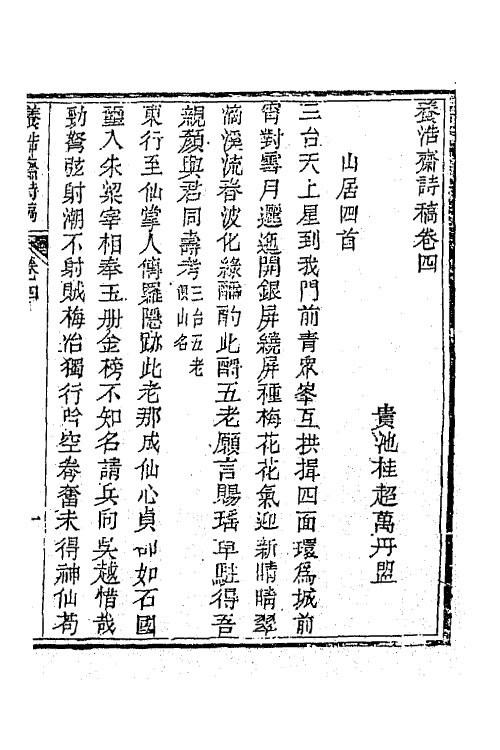 養浩齋詩稿卷四
貴池桂超萬丹盟
山居四首
三台天上星到我門前青衆峯互拱揖四面環爲城前
宵對雪月邐迤開銀屏繞屏種梅花花氣迎新晴晴翠
滴溪流春波化綠醑酌此醑五老願言賜瑤草駐得吾
親顏與君同壽考三台五老俱山名
東行至仙掌人傳羅隱跡此老那成仙心貞如石國
璽入朱梁宰相奉玉册金榜不知名請兵向吳越惜哉
勁弩弦射潮不射賊梅冶獨行吟空眷奮未得神仙苟
養浩齋詩稿
卷四
一